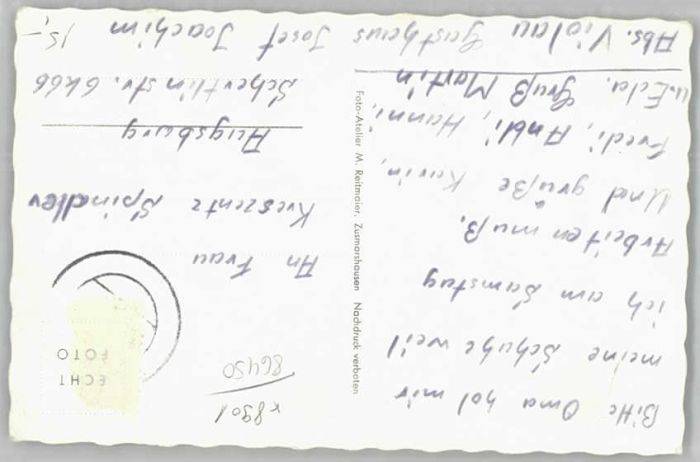 Bitte Oma hol mir
meine Schuhe weil
ich am Samstag
Arbeiten muß.
Und grüße Karin,
Fredi, Anbli, Hanni,
u. Ecla. Gruß Martin
Abs. Violau Gasthaus Josef Joachim
Foto-Atelier M. Reitmaier, Zusmarshausen Nachdruck verboten
x8901
86450
ECHT
FOTO
An Frau
Kreszentz Spindler
Augsburg
Schertlin str. 6k66
15,-